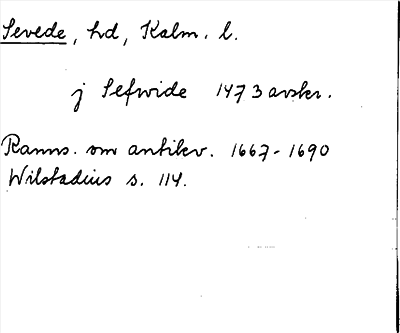 Sevede, hd, Kalm. l.
j Sefwide 1473 avskr.
Ranns. om antikv. 1667-1690
Wilstadius s. 114.